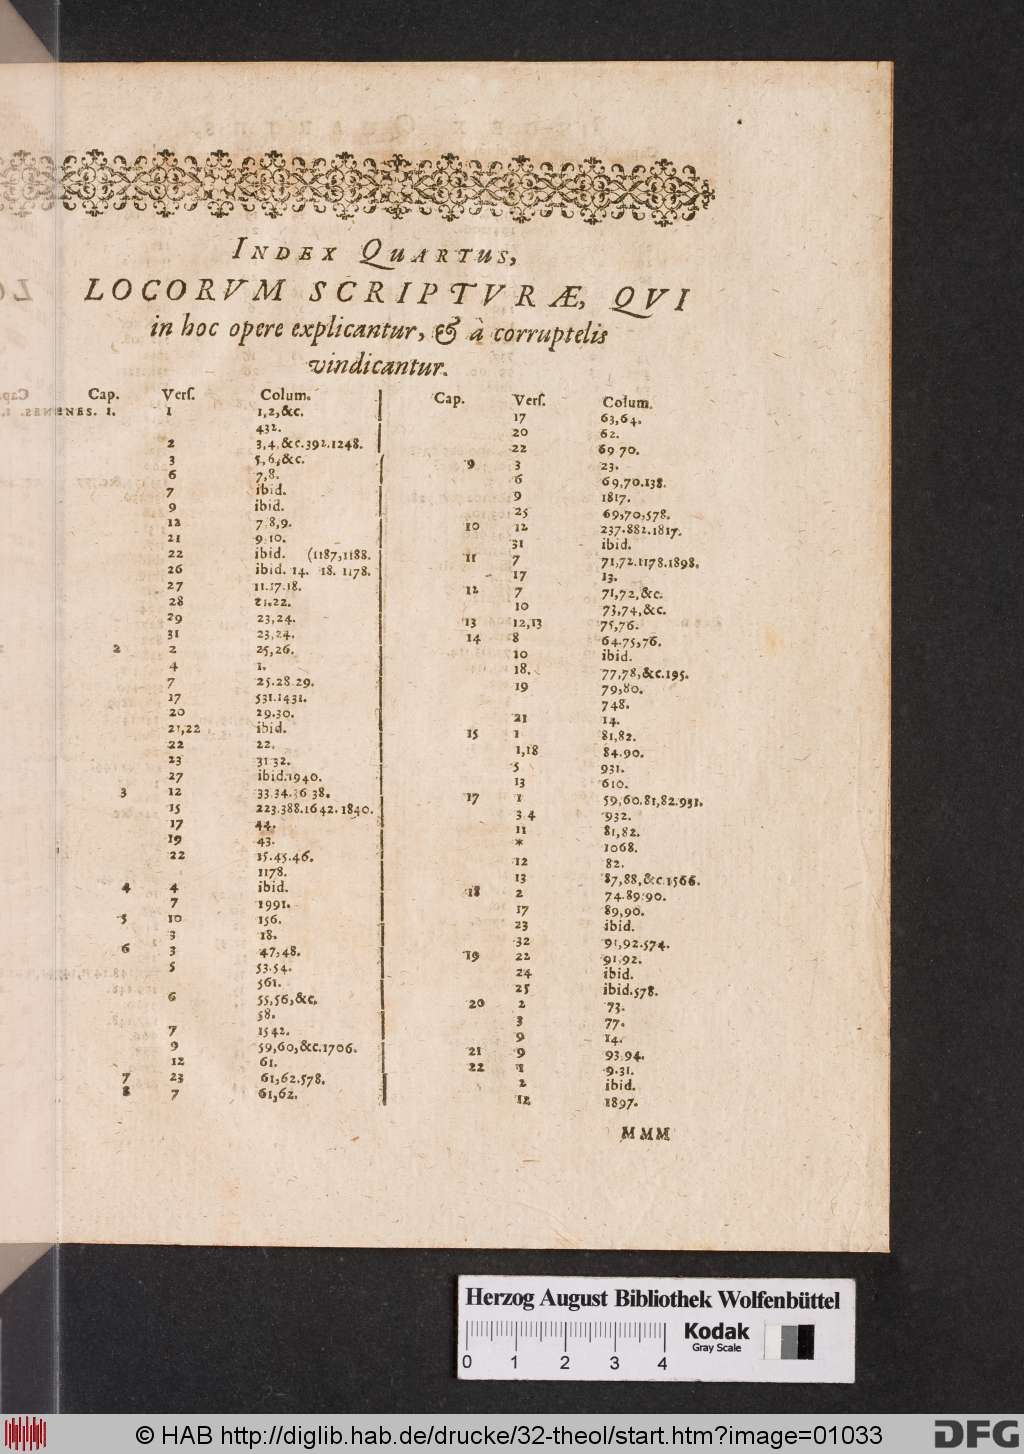 INDEX QUARTUS,
LOCORVM SCRIPTVRÆ, QVI
in hoc opere explicantur, & à corruptelis
vindicantur.
Cap. Verſ. Colum.
1. 1 1,2,&c.
432.
2 3,4,&c.392.1248.
3 5,6,&c.
6 7,8.
7 ibid.
9 ibid.
12 7 8,9.
21 9 10.
22 ibid. (1187,1188.
26 ibid. 14. 18. 1178.
27 11.17.18.
28 21.22.
29 23,24.
31 23,24.
2 2 25,26.
4 1.
7 25.28 29.
17 531.1431.
20 29.30.
21,22 ibid.
22 22.
23 31 32.
27 ibid.1940.
3 12 33.34.36 38.
15 223.388.1642.1840.
17 44.
19 43.
22 15.45.46.
1178.
4 4 ibid.
7 1991.
5 10 156.
3 18.
6 3 47,48.
5 53.54.
561.
6 55,56,&c.
58.
7 1542.
9 59,60,&c.1706.
12 61.
7 23 61,62.578.
8 7 61,62.
Cap. Verſ. Colum.
17 63,64.
20 62.
22 69 70.
9 3 23.
6 69,70.138.
9 1817.
25 69,70,578.
10 12 237.882.1817.
31 ibid.
11 7 71,72.1178.1898.
17 13.
12 7 71,72,&c.
10 73,74,&c.
13 12,13 75,76.
14 8 64.75,76.
10 ibid.
18. 77,78,&c.195.
19 79,80.
748.
21 14.
15 1 81,82.
1,18 84.90.
5 931.
13 610.
17 1 59,60.81,82.931.
3 4 932.
11 81,82.
* 1068.
12 82.
13 87,88,&c.1566.
18 2 74.89.90.
17 89,90.
23 ibid.
32 91,92.574.
19 22 91.92.
24 ibid.
25 ibid.578.
20 2 73.
3 77.
9 14.
21 9 93.94.
22 1 9.31.
2 ibid.
12 1897.
MMM
Herzog August Bibliothek Wolfenbüttel
Kodak
Gray Scale
0 1 2 3 4
© HAB http://diglib.hab.de/drucke/32-theol/start.htm?image=01033
DFG